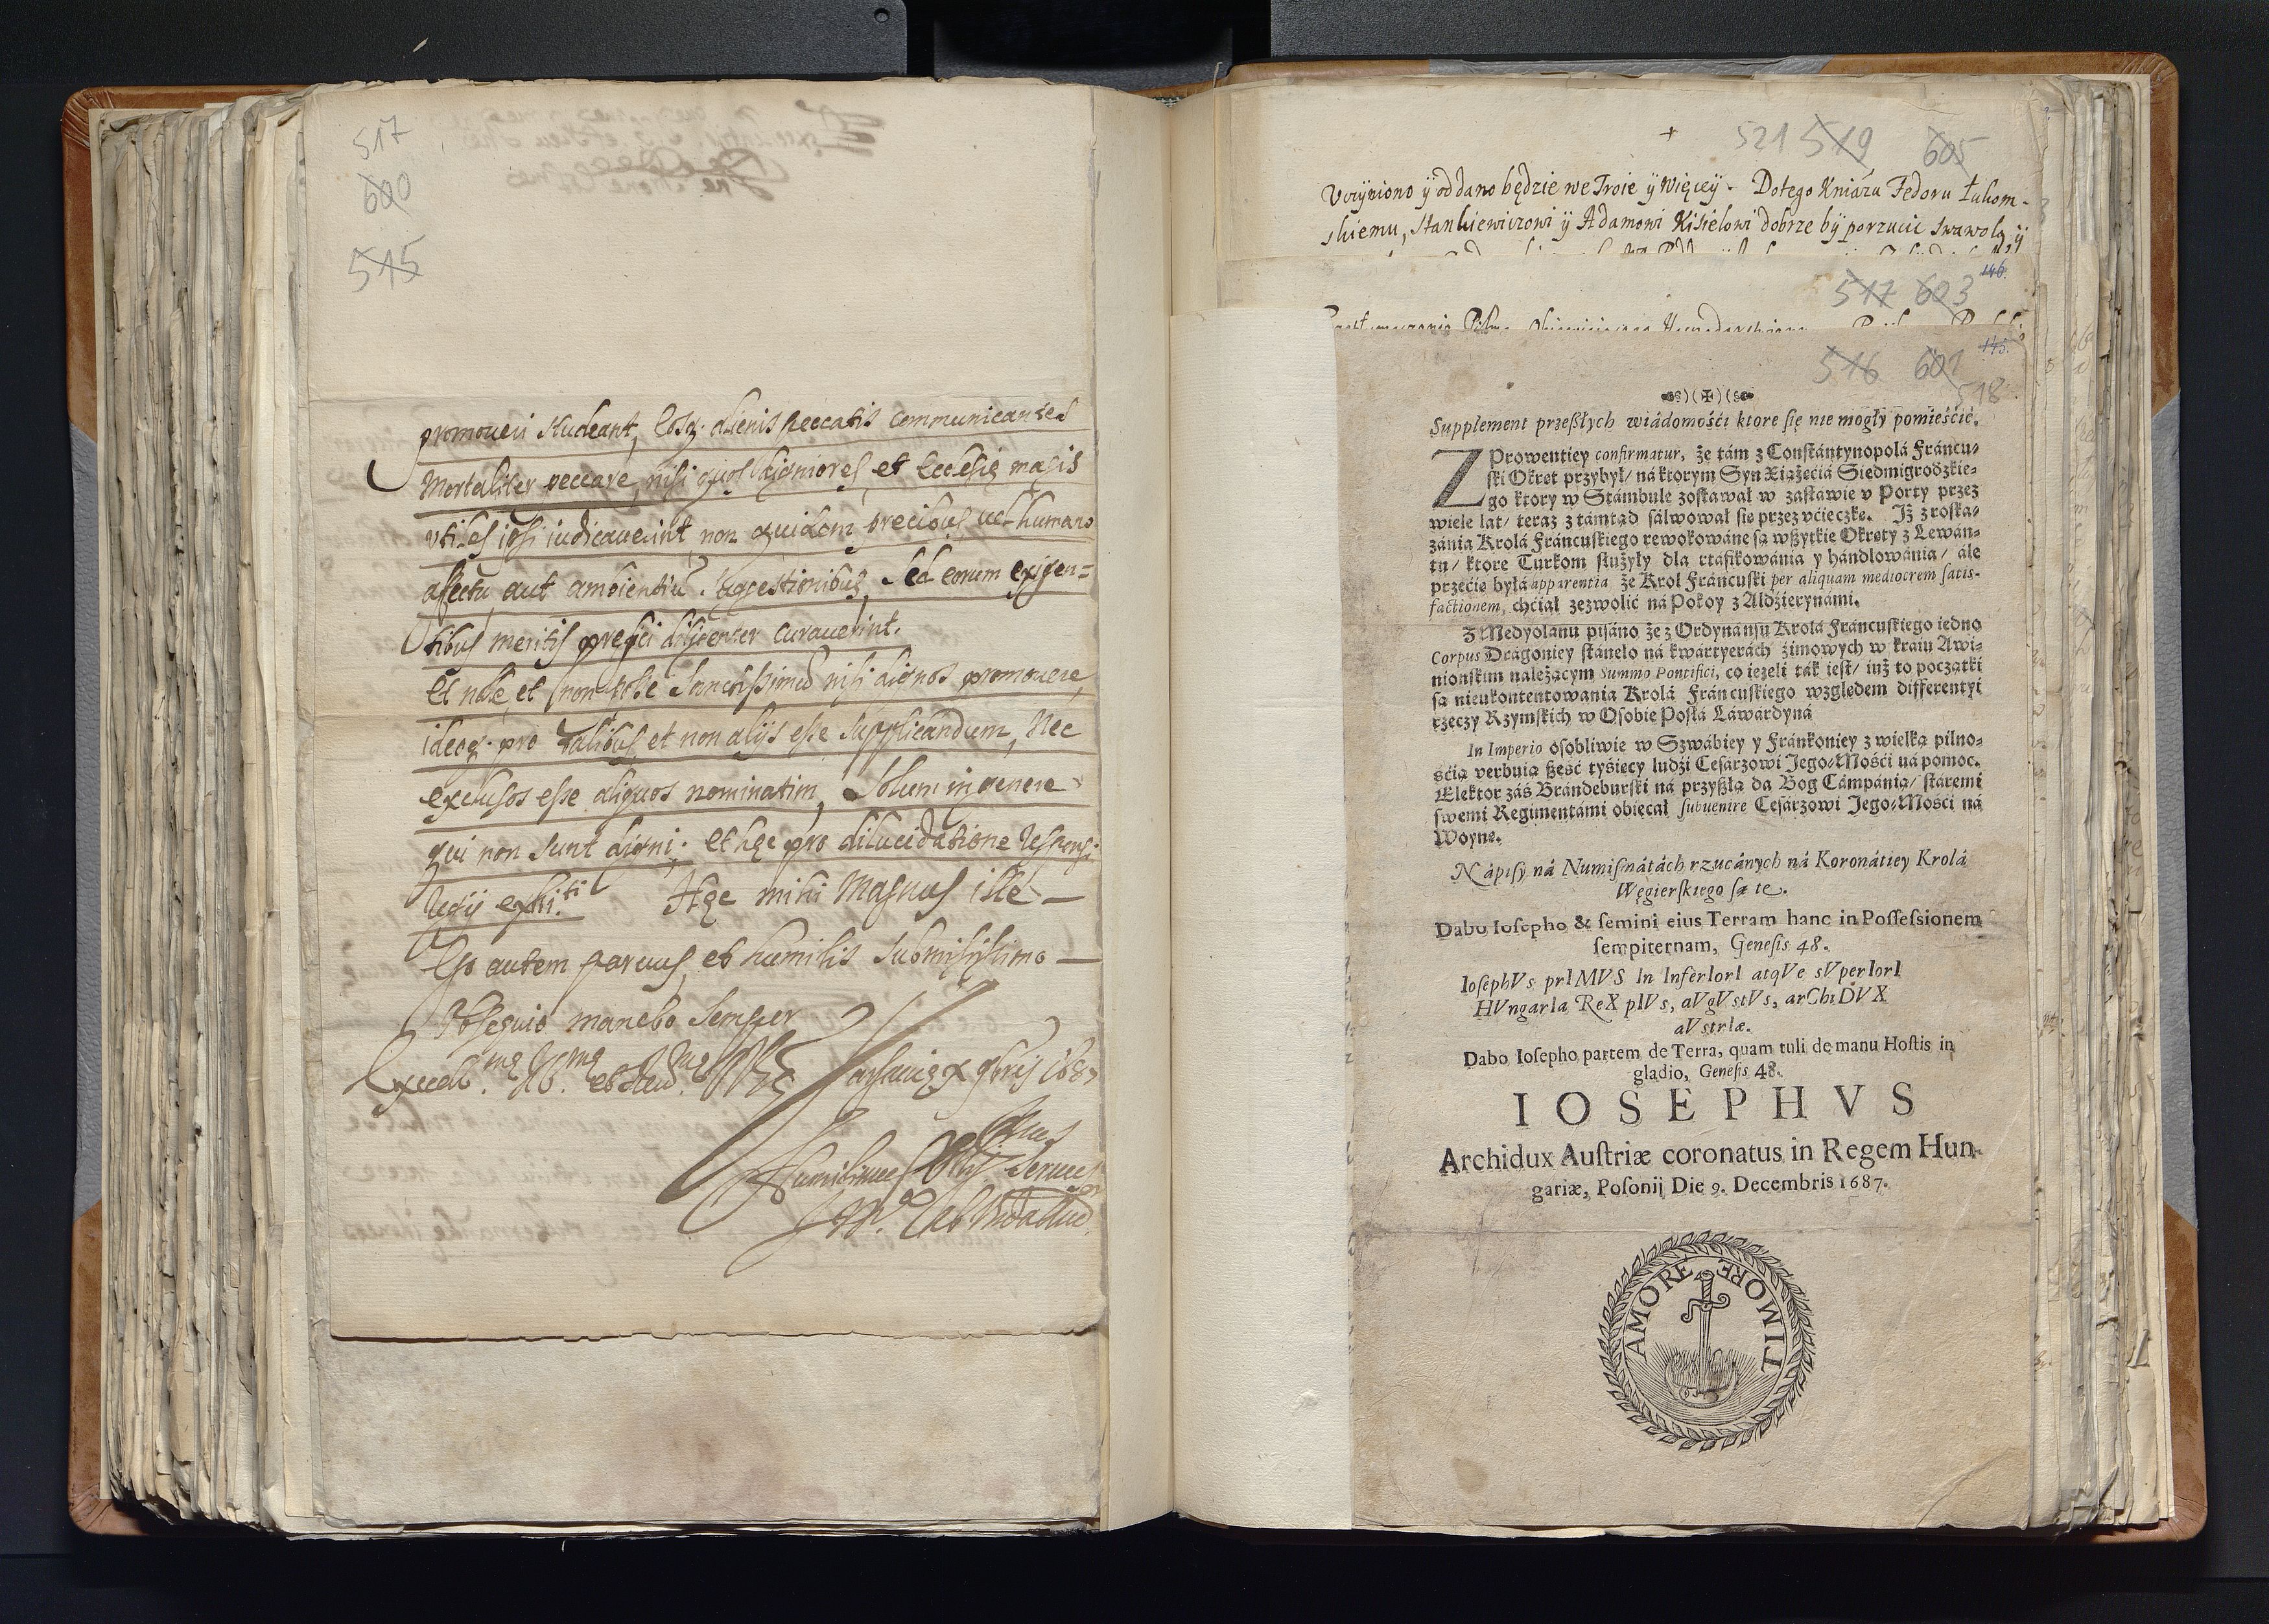 517
600
515
promoueri studeant, eosq. alienis peccatis communicantes
mortaliter peccare, nisi quos digniores, et Ecclesię magis
vtiles ipsi iudicauerint non quidem precibus, uel humano
affectu aut ambientiũ suggestionibus, sed eorum exigen=
tibus meritis prefici diligenter curauerint.
et non Sanctissimũ nisi dignos promouere,
ideoq. pro talibus, et non alijs esse supplicandum, Nec
exclusos esse aliquos nominatim, solum in genere
qui non sunt digni; et hęc pro dilucidatione responsi
Regij exhi.ti Hęc mihi Magnus ille —
Ego autem paruus, et humilis submississimo —
obsequio manebo semper
Varsauię X 9bris 1687
521 519 605
Vczyniono ÿ oddano będzie we Troie ÿ Więceÿ. Dotego Kniázu Fedoru Łukom-
skiemu, Stankiewiczowi ÿ Adamowi Kisielowi dobrze bÿ porzucic swawolą, ÿ
146.
517 603
145.
516 601
518
Supplement przeßłych wiádomośći ktore się nie mogły pomieśćić.
Z Prowentiey confirmatur, że tám z Constántynopolá Fráncu-
ski Okret przybył/ ná ktorym Syn Xiążęćiá Siedmigrodzkie-
go ktory w Stámbule zostawał w zastawie v Porty przez
wiele lat/ teraz z támtąd sálwował się przez vćieczkę. Iż z roska-
zánia Krolá Fráncuskiego rewokowáne są wßytkie Okręty z Lewán-
tu/ ktore Turkom służyły dla rtáfikowánia y hándlowánia/ ále
przećie byłá apparentia że Krol Fráncuski per aliquam mediocrem satis-
factionem, chćiał zezwolić ná Pokoy z Aldżierynámi.
Z Medyolanu pisáno że z Ordynánsu Krolá Fráncuskiego iedno
Corpus Drágoniey stánęło ná kwártyerách zimowych w kraiu Awi-
nionskim należącym Summo Pontifici, co ieżeli ták iest/ iuż to początki
są nieukontentowania Krolá Fráncuskiego względem differentyi
rzeczy Rzymskich w Osobie Posłá Láwárdyná
In Imperio osobliwie w Szwábiey y Fránkoniey z wielką pilno-
śćią verbuią ßeść tyśięcy ludźi Cesárzowi Jego-Mośći ná pomoc.
Elektor záś Brándeburski ná przyßłą da Bog Cámpánią/ stáremi
swemi Regimentámi obiecał subuenire Cesárzowi Jego-Mośći ná
Woynę.
Nápisy ná Numismátách rzucánych ná Koronátiey Krolá
Węgierskiego są te.
Dabo Iosepho & semini eius Terram hanc in Possessionem
sempiternam, Genesis 48.
IosephVs prIMVS In InferIorI atqVe sVperIorI
HVngarIa ReX pIVs, aVgVstVs, arChIDVX
aVstrIæ.
Dabo Iosepho partem de Terra, quam tuli de manu Hostis in
gladio, Genesis 48.
IOSEPHVS
Archidux Austriæ coronatus in Regem Hun-
gariæ, Posonij Die 9. Decembris 1687.
AMORE TIMORE